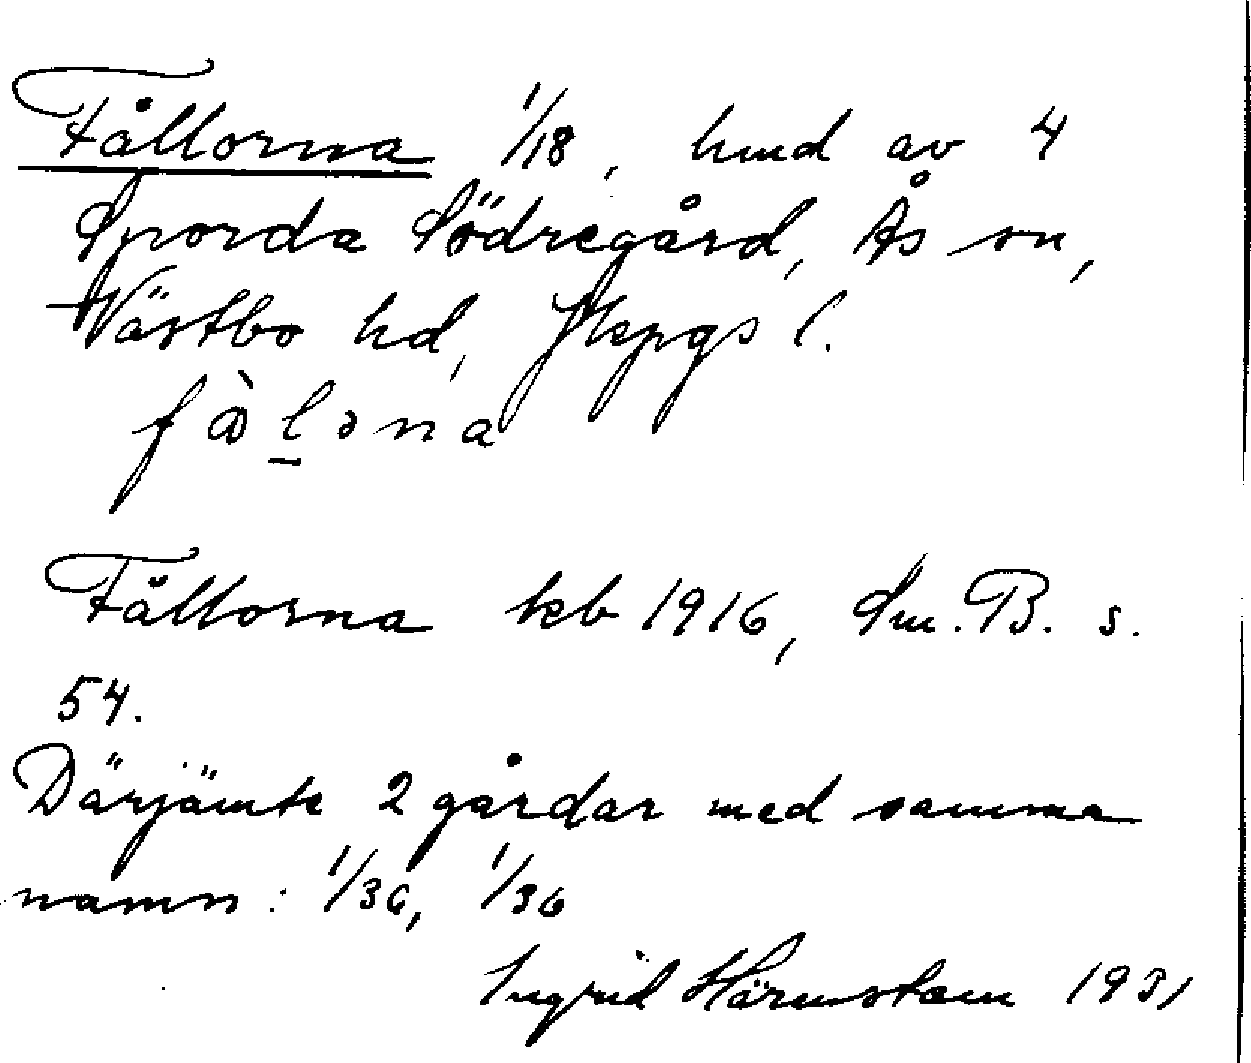 Fållorna 1/18, hmd av 4
Sporda Södregård, Ås sn,
Västbo hd, Jkpgs l.
fålona
Fållorna keb 1916, Sm. B. s.
54.
Därjämte 2 gårdar med samma
namn: 1/36, 1/36
Ingrid Härenstam 1931